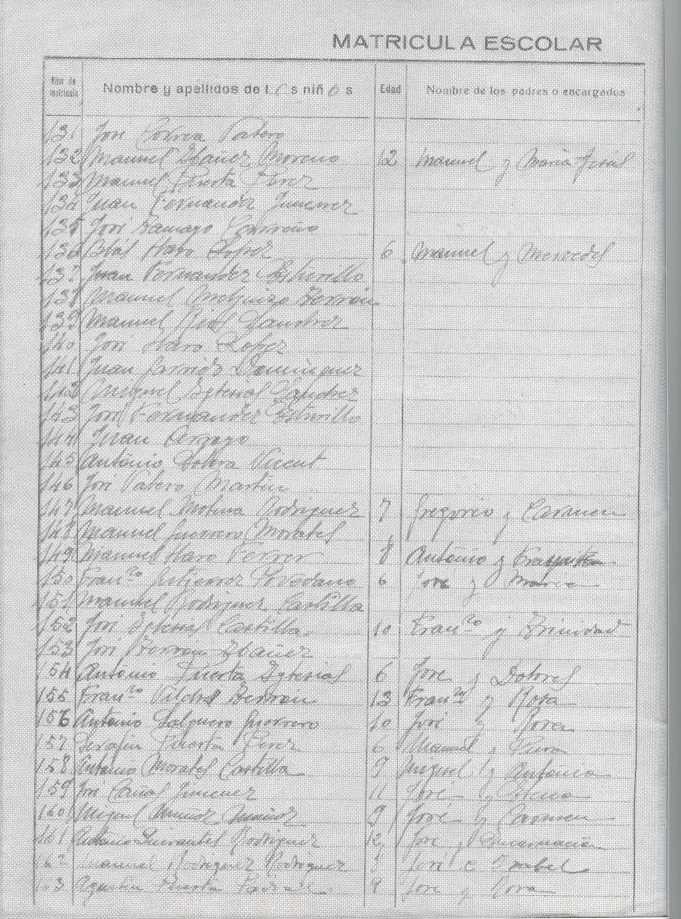 MATRICULA ESCOLAR
Núm. de matrícula Nombre y apellidos de l o s niñ o s Edad Nombre de los padres o encargados
131 José Correa Valero
132 Manuel Ibáñez Moreno 12 Manuel y María Jesús
133 Manuel Puerta Perez
134 Juan Fernandez Jimenez
135 José Ramago Carreño
136 Blás Haro Lopez 6 Manuel y Mercedes
137 Juan Fernandez
138 Manuel Berrón
139 Manuel Rios Sanchez
140 José Haro Lopez
141 Juan Garrido Dominguez
142 Miguel Iglesias Sanchez
143 José Fernandez
144 Juan Arroyo
145 Antonio Vicent
146 José Valero Martin
147 Manuel Molina Rodriguez 7 Gregorio y Carmen
148 Manuel Guerrero Morales
149 Manuel Haro Ferrer 8 Antonio y
150 Franco Gutierrez Povedano 6 José y Maria
151 Manuel Rodriguez Castilla
152 José Iglesias Castilla 10 Franco y Trinidad
153 José Berrón Ibáñez
154 Antonio Puerta Iglesias 6 José y Dolores
155 Franco Vilches Berrón 13 Franco y Rosa
156 Antonio Salguero Guerrero 10 José y Rosa
157 Serafin Puerta Perez 6 Manuel y
158 Antonio Morales Castilla 9 Miguel y Antonia
159 José Cañas Jimenez 11 José y Elena
160 Miguel Muñoz Muñoz 9 José y Carmen
161 Antonio Rodriguez 12 José y Encarnación
162 Manuel Rodriguez Rodriguez 5 José e Isabel
163 Agustin Puerta 9 José y Rosa